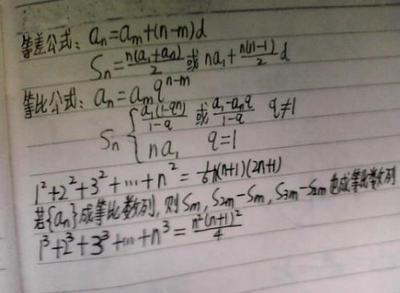 等差公式: aₙ=aₘ+(n-m)d
Sₙ=n(a₁+aₙ)/2 或 na₁+n(n-1)/2 d
等比公式: aₙ=aₘqⁿ⁻ᵐ
Sₙ{a₁(1-qⁿ)/1-q 或 a₁-aₙq/1-q q≠1
na₁ q=1
1²+2²+3²+⋯+n²=1/6n(n+1)(2n+1)
若{aₙ}成等比数列, 则Sₘ, S₂ₘ-Sₘ, S₃ₘ-S₂ₘ也成等比数列
1³+2³+3³+⋯+n³=n²(n+1)²/4